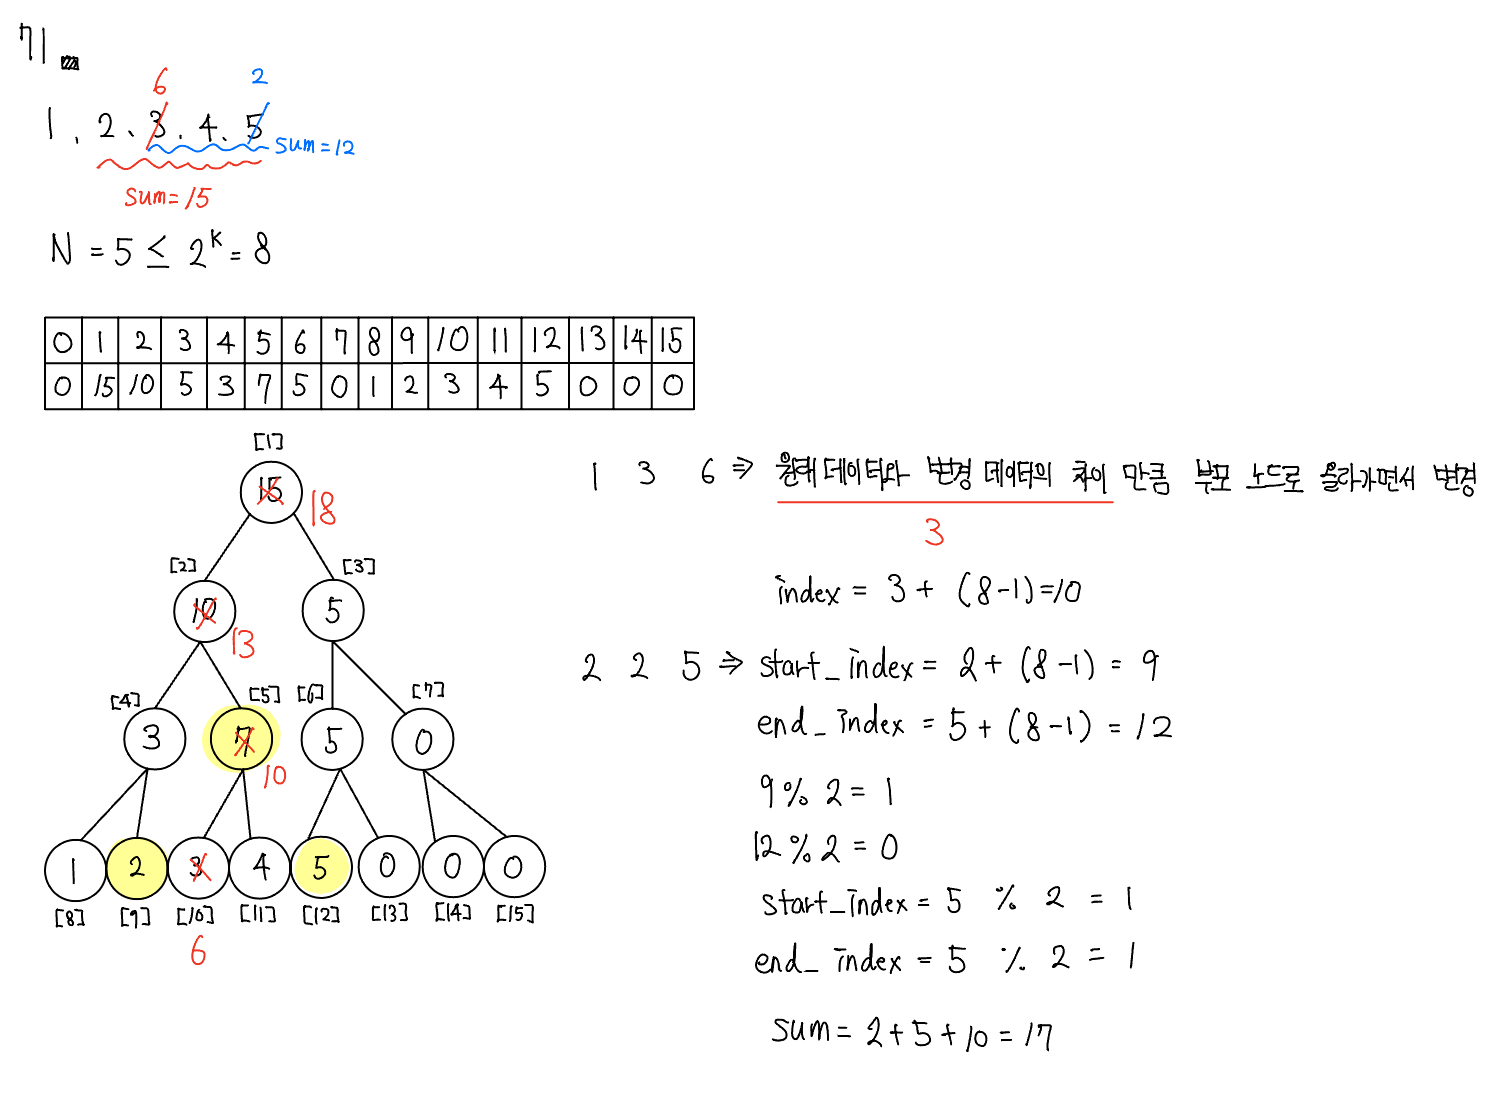 71
6 2
1, 2, 3, 4, 5
sum=12
sum=15
N = 5 ≤ 2^k = 8
0 1 2 3 4 5 6 7 8 9 10 11 12 13 14 15
0 15 10 5 3 7 5 0 1 2 3 4 5 0 0 0
[1]
15 18
[2] [3]
10 13 5
[4] [5] [6] [7]
3 7 10 5 0
1 2 3 4 5 0 0 0
[8] [9] [10] [11] [12] [13] [14] [15]
6
1 3 6 ⇒ 원래 데이터와 변경 데이터의 차이 만큼 부모 노드로 올라가면서 변경
3
index = 3 + (8-1)=10
2 2 5 ⇒ start_index = 2 + (8-1) = 9
end_index = 5 + (8-1) = 12
9 % 2 = 1
12 % 2 = 0
start_index = 5 % 2 = 1
end_index = 5 % 2 = 1
sum = 2+5+10 = 17